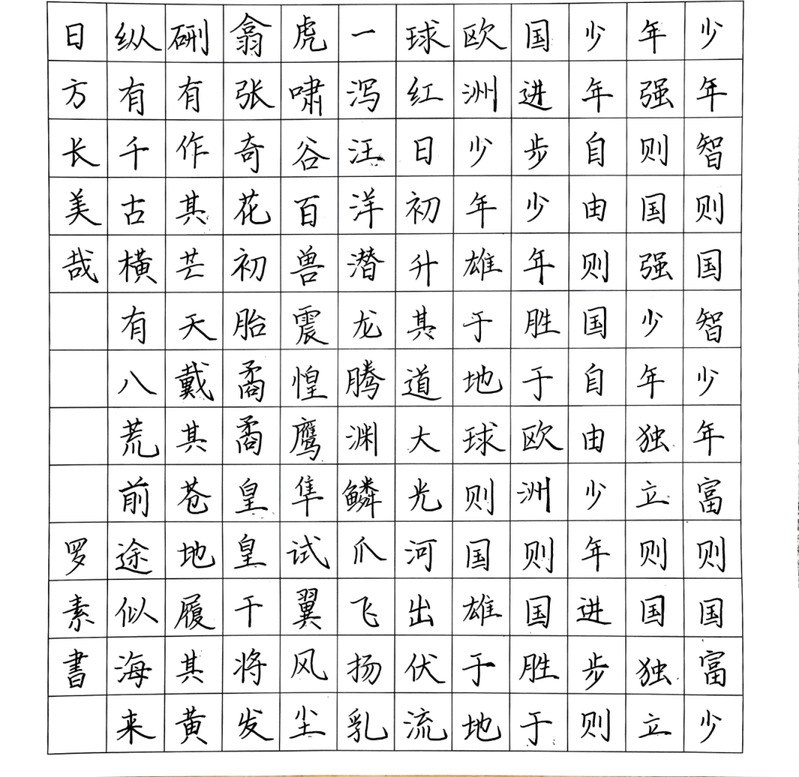 少年智则国智少年富则国富少
年强则国强少年独立则国独立
少年自由则国自由少年进步则
国进步少年胜于欧洲则国胜于
欧洲少年雄于地球则国雄于地
球红日初升其道大光河出伏流
一泻汪洋潜龙腾渊鳞爪飞扬乳
虎啸谷百兽震惶鹰隼试翼风尘
翕张奇花初胎矞矞皇皇干将发
硎有作其芒天戴其苍地履其黄
纵有千古横有八荒前途似海来
日方长美哉
罗素書